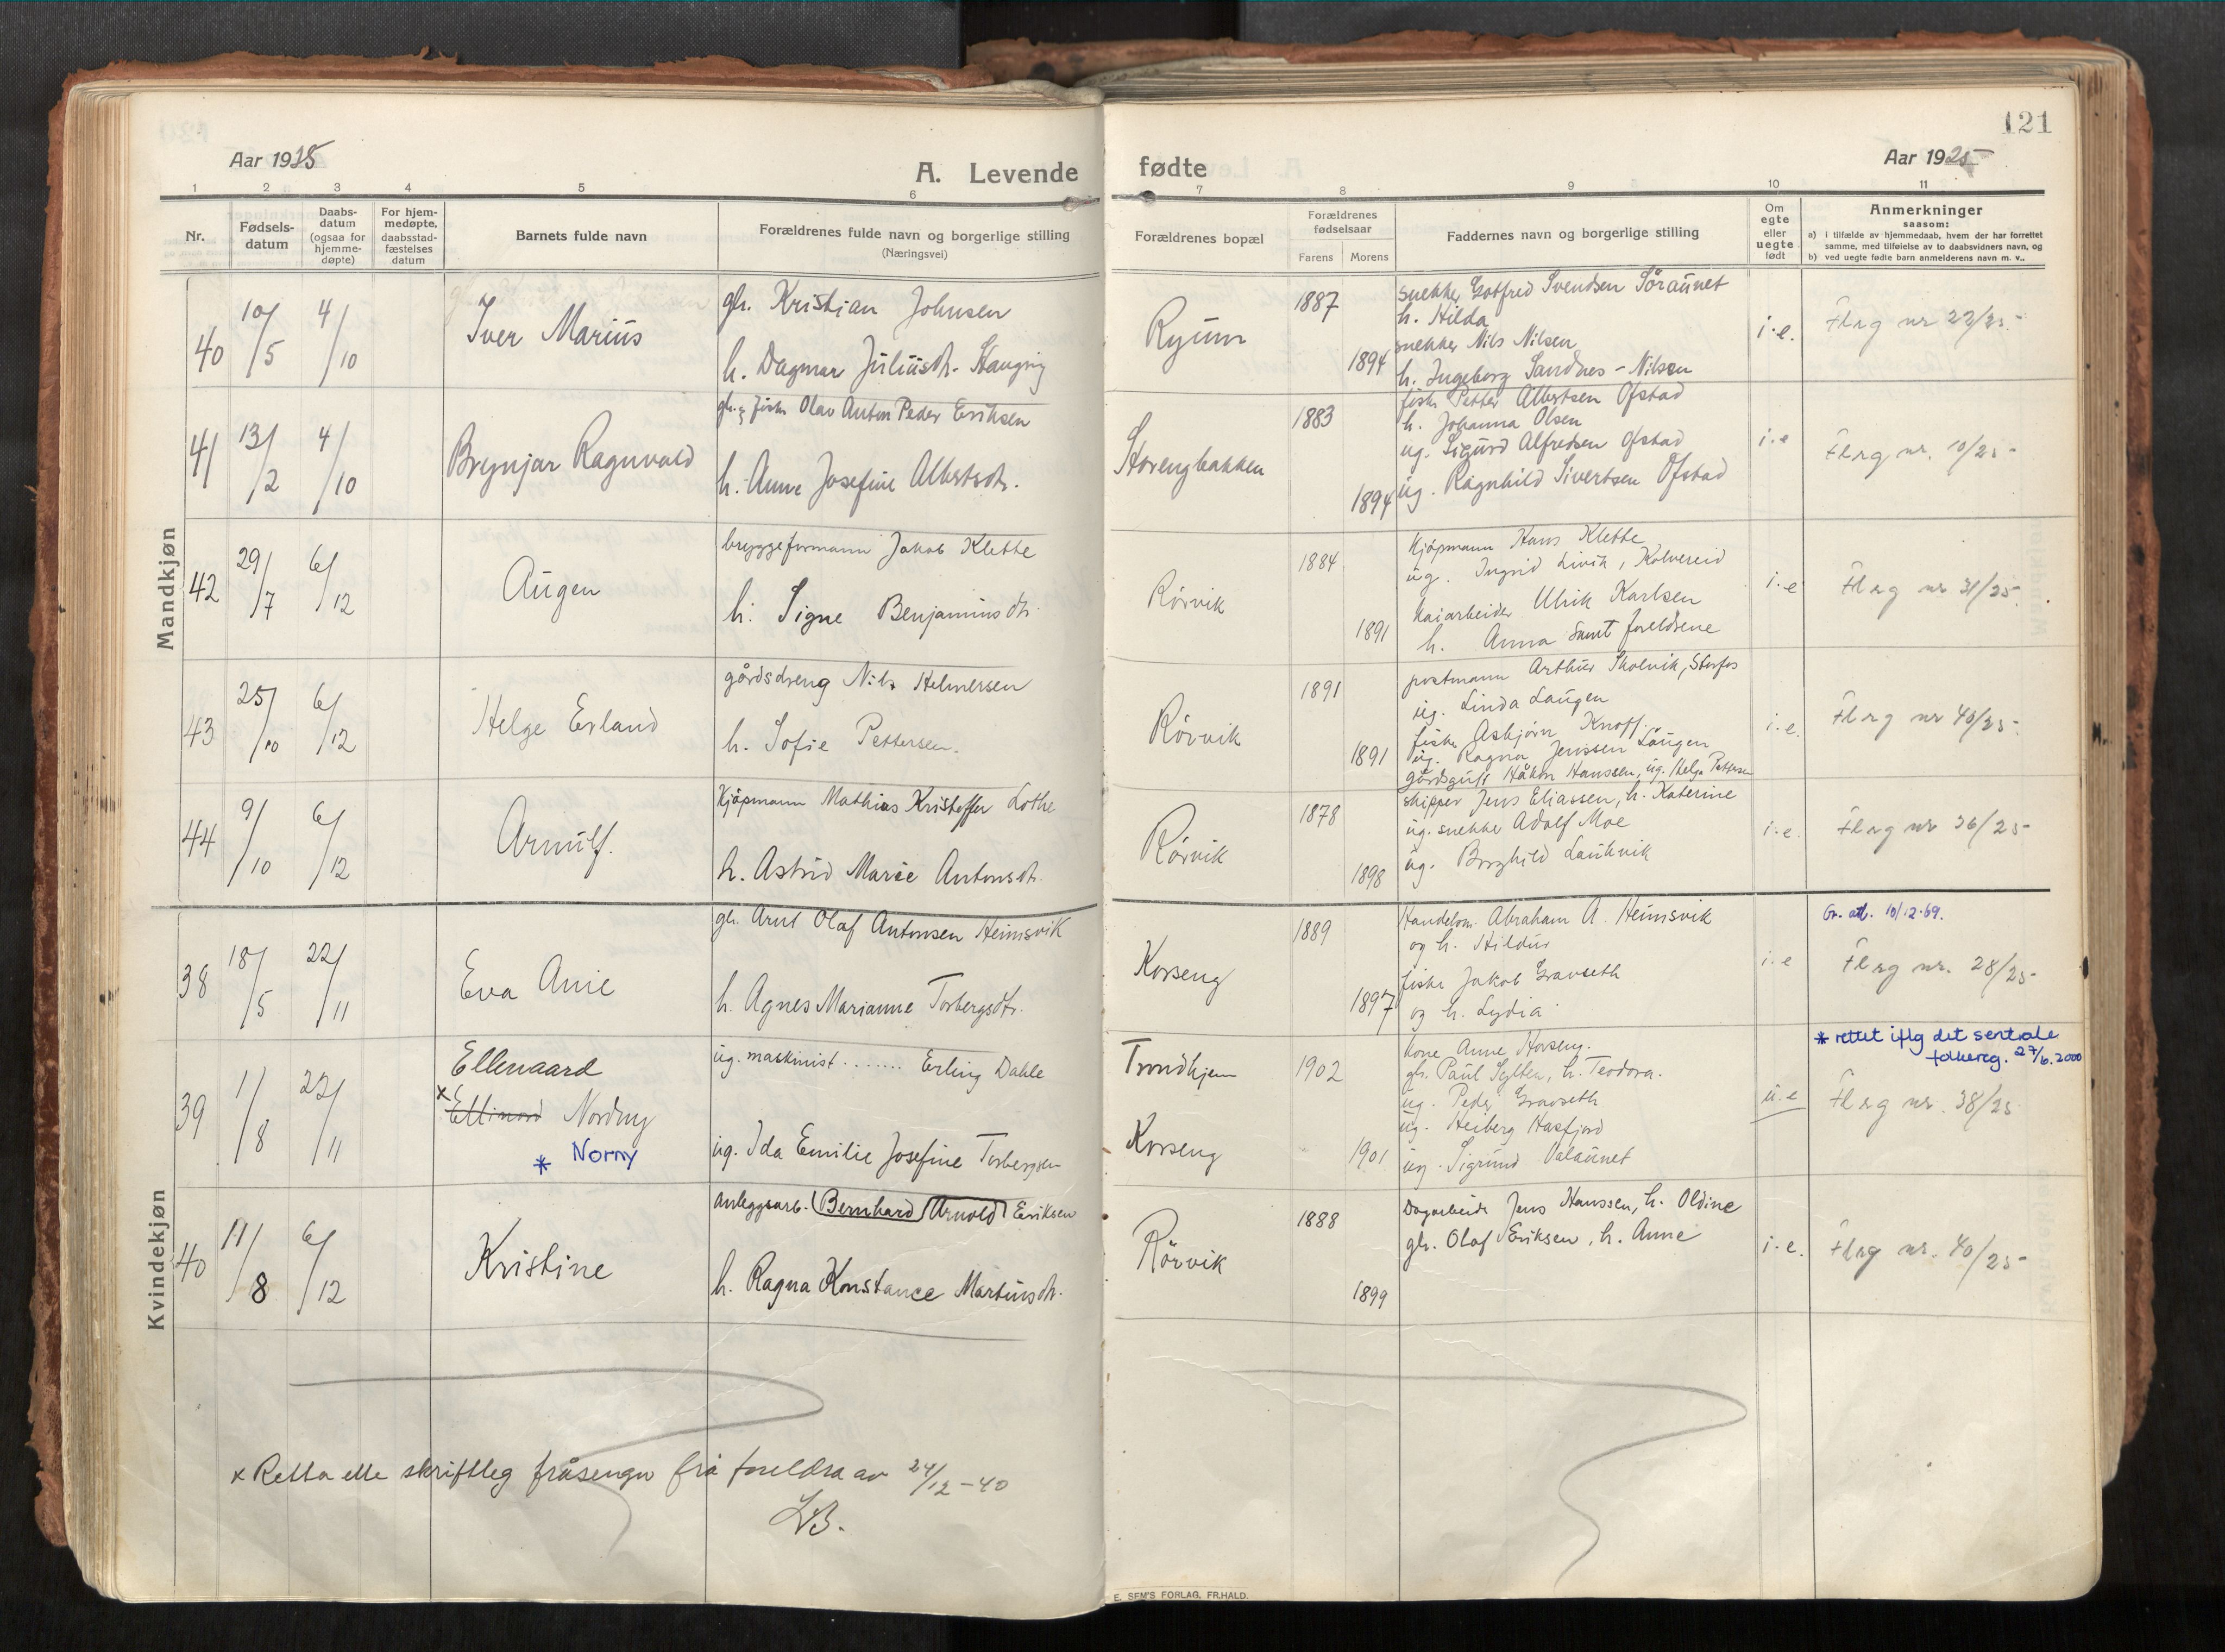 121
Aar 1925
A. Levende
fødte
Aar 1925
1 2 3 4 5 6 7 8 9 10 11
Nr.
Fødsels-
datum
Daabs-
datum
(ogsaa for
hjemme-
døpte)
For hjem-
medøpte,
daabsstad-
fæstelses
datum
Barnets fulde navn
Forældrenes fulde navn og borgerlige stilling
(Næringsvei)
Forældrenes bopæl
Forældrenes
fødselsaar
Farens Morens
Faddernes navn og borgerlige stilling
Om
egte
eller
uegte
født
Anmerkninger
saasom:
a) i tilfælde av hjemmedaab, hvem der har forrettet
samme, med tilføielse av to daabsvidners navn, og
b) ved uegte fødte barn anmelderens navn m. v..
Mandkjøn
40
10/5
4/10
Iver Marius
gbr. Kristian Johnsen
h. Dagmar Juliusdtr.
Ryum
1887
1894
snekker Gotfred Svendsen Söraunet
h. Hilda
snekker Nils Nilsen
h. Ingeborg Sandnes - Nilsen
i.e.
Flrg nr 22/25
41
13/2
4/10
Brynjar Ragnvald
gbr. & fisker Olav Anton Peder Eriksen
h. Anne Josefine Albertsdtr.
Storengbakken
1883
1894
fisker Petter Albertsen Ofstad
h. Johanna Olsen
ug. Sigurd Alfredsen Ofstad
ug. Ragnhild Sivertsen Ofstad
i.e
Flrg nr. 10/25
42
29/7
6/12
Augen
bryggeformann Jakob Klette
h. Signe Benjaminsdtr.
Rörvik
1884
1891
Kjöpmann Hans Klette
ug. Ingrid Livik, Kolvereid
Kaiarbeider Ulrik Karlsen
h. Anna samt foreldrene
i.e
Flrg nr 31/25.
43
25/10
6/12
Helge Erland
gårdsdreng Nils Helmersen
h. Sofie Pettersen.
Rörvik
1891
1891
postmann Arthur Skolvik, Storfos
ug. Linda Laugen
fisker Asbjörn Knoff
ug. Ragna Jenssen Laugen
gårdsgutt Håkon Hanssen, ug. Helga Pettersen
i.e.
Flrg nr 40/25
44
9/10
6/12
Arnulf.
Kjöpmann Mathias Kristoffer Lothe
h. Astrid Marie Antonsdtr.
Rörvik
1878
1898
skipper Jens Eliassen, h. Katerine
ug. snekker Adolf Moe
ug. Borghild Laukvik
i.e.
Flrg nr 36/25
Kvindekjøn
38
18/5
22/11
Eva Anie
gbr. Arnt Olaf Antonsen Heimsvik
h. Agnes Marianne Torbergsdtr.
Korseng
1889
1897
Handelsm. Abraham A. Heimsvik
og h. Hildur
fisker Jakob Gravseth
og h. Lydia
i.e
Gr. att. 10/12.69.
Flrg nr. 28/25
39
1/8
22/11
Ellenaard
x Ellinord Nordny
* Norny
ug. maskinist ....... Erling Dahle
ug. Ida Emilie Josefine Torbergsen
Trondhjem
Korseng
1902
1901
kone Anne Horseng.
gbr. Paul Sylten, h. Teodora.
ug. Peder Gravseth
ug. Heiberg Hasfjord
ug. Sigrund Valaunet
u.e
* rettet iflg det sentrale
folkereg. 27/6.2000
Flrg nr. 38/25
40
11/8
6/12
Kristine
Anleggsarb. (Bernhard) Arnold Eriksen
h. Ragna Konstance Martinsdtr.
Rörvik
1888
1899
Dagarbeider Jens Hanssen, h. Oldine
gbr. Olaf Eriksen, h. Anne
i.e.
Flrg nr. 40/25
x Retta etter skriftleg fråsegn frå foreldra av 24/12-40
LB.
E. SEM'S FORLAG, FR.HALD.